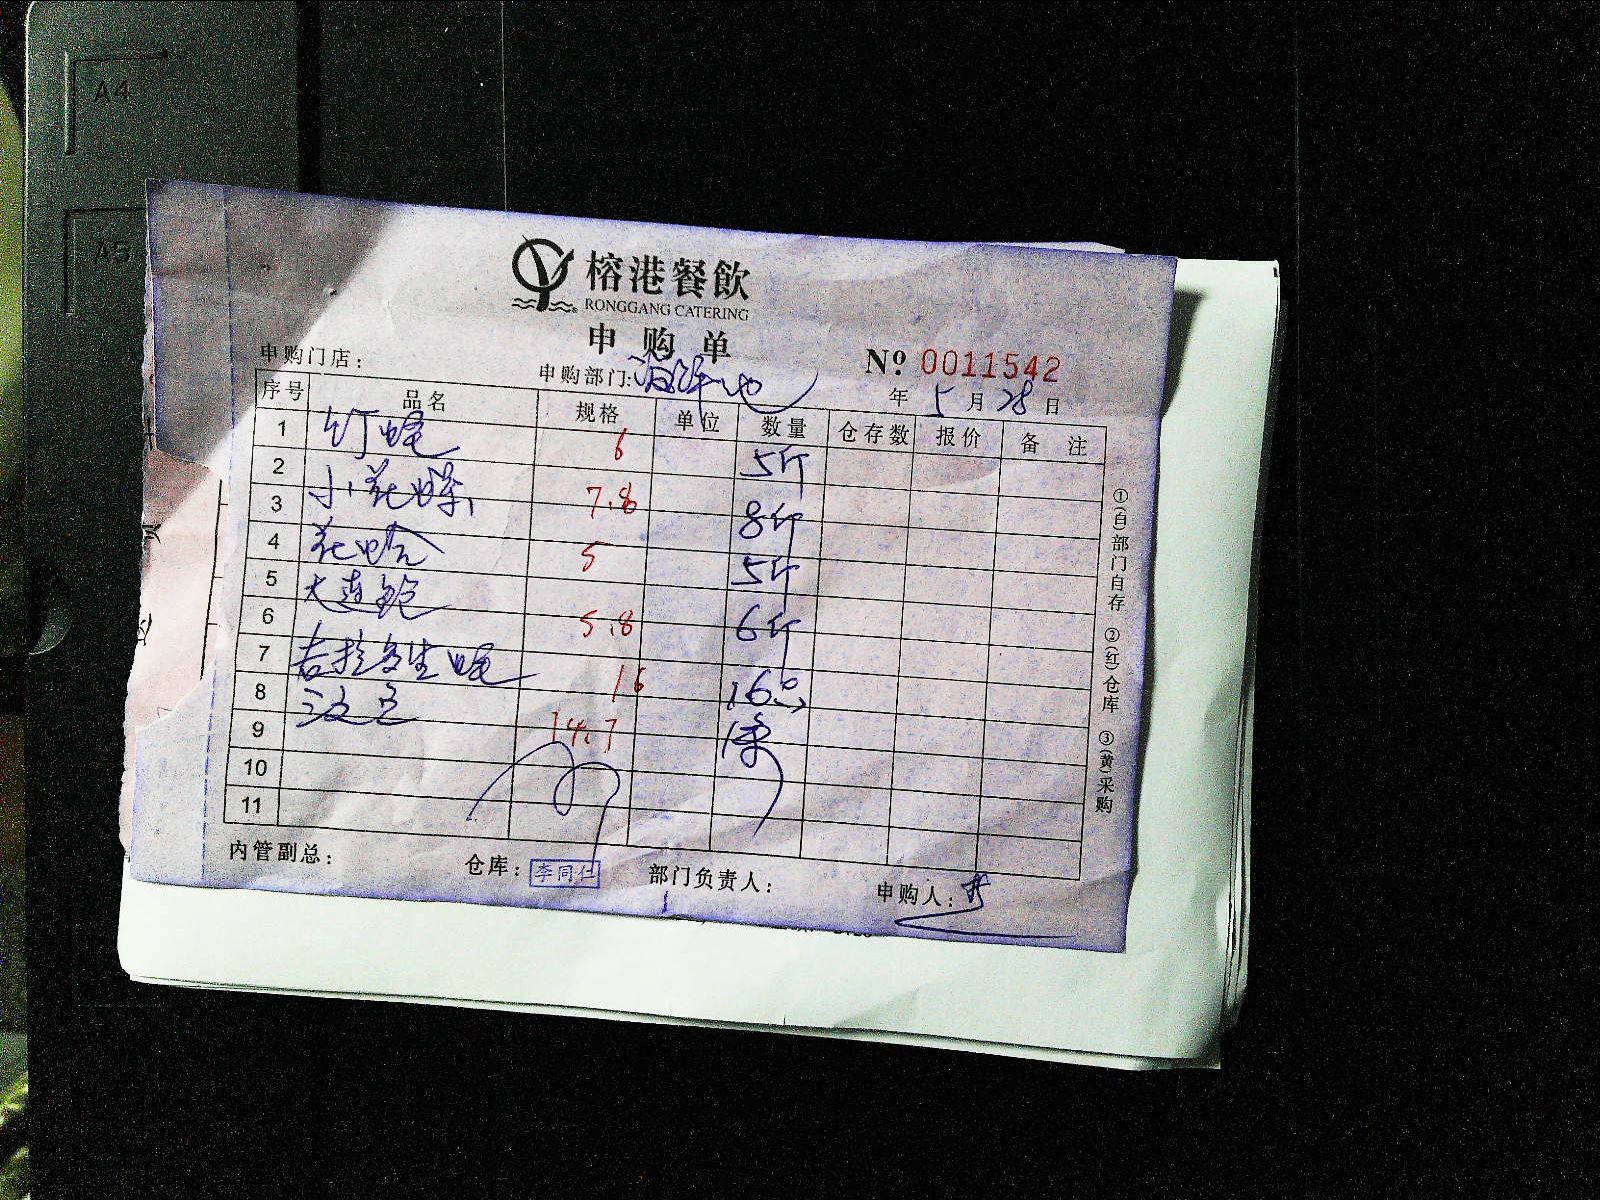 A4
A5
榕港餐飲
RONGGANG CATERING
申购单
申购门店：
申购部门：海鲜池
№ 0011542
年 5 月 28 日
序号 品名 规格 单位 数量 仓存数 报价 备注
1 钉螺 6 5斤
2 小花螺 7.8 8斤
3
4 花蛤 5 5斤
5 大连鲍
6 5.8 6斤
7 吉拉多生蚝 16 16只
8
9 14.7 1条
10
11
①(白)部门自存 ②(红)仓库 ③(黄)采购
内管副总：
仓库：李同仁
部门负责人：
申购人：